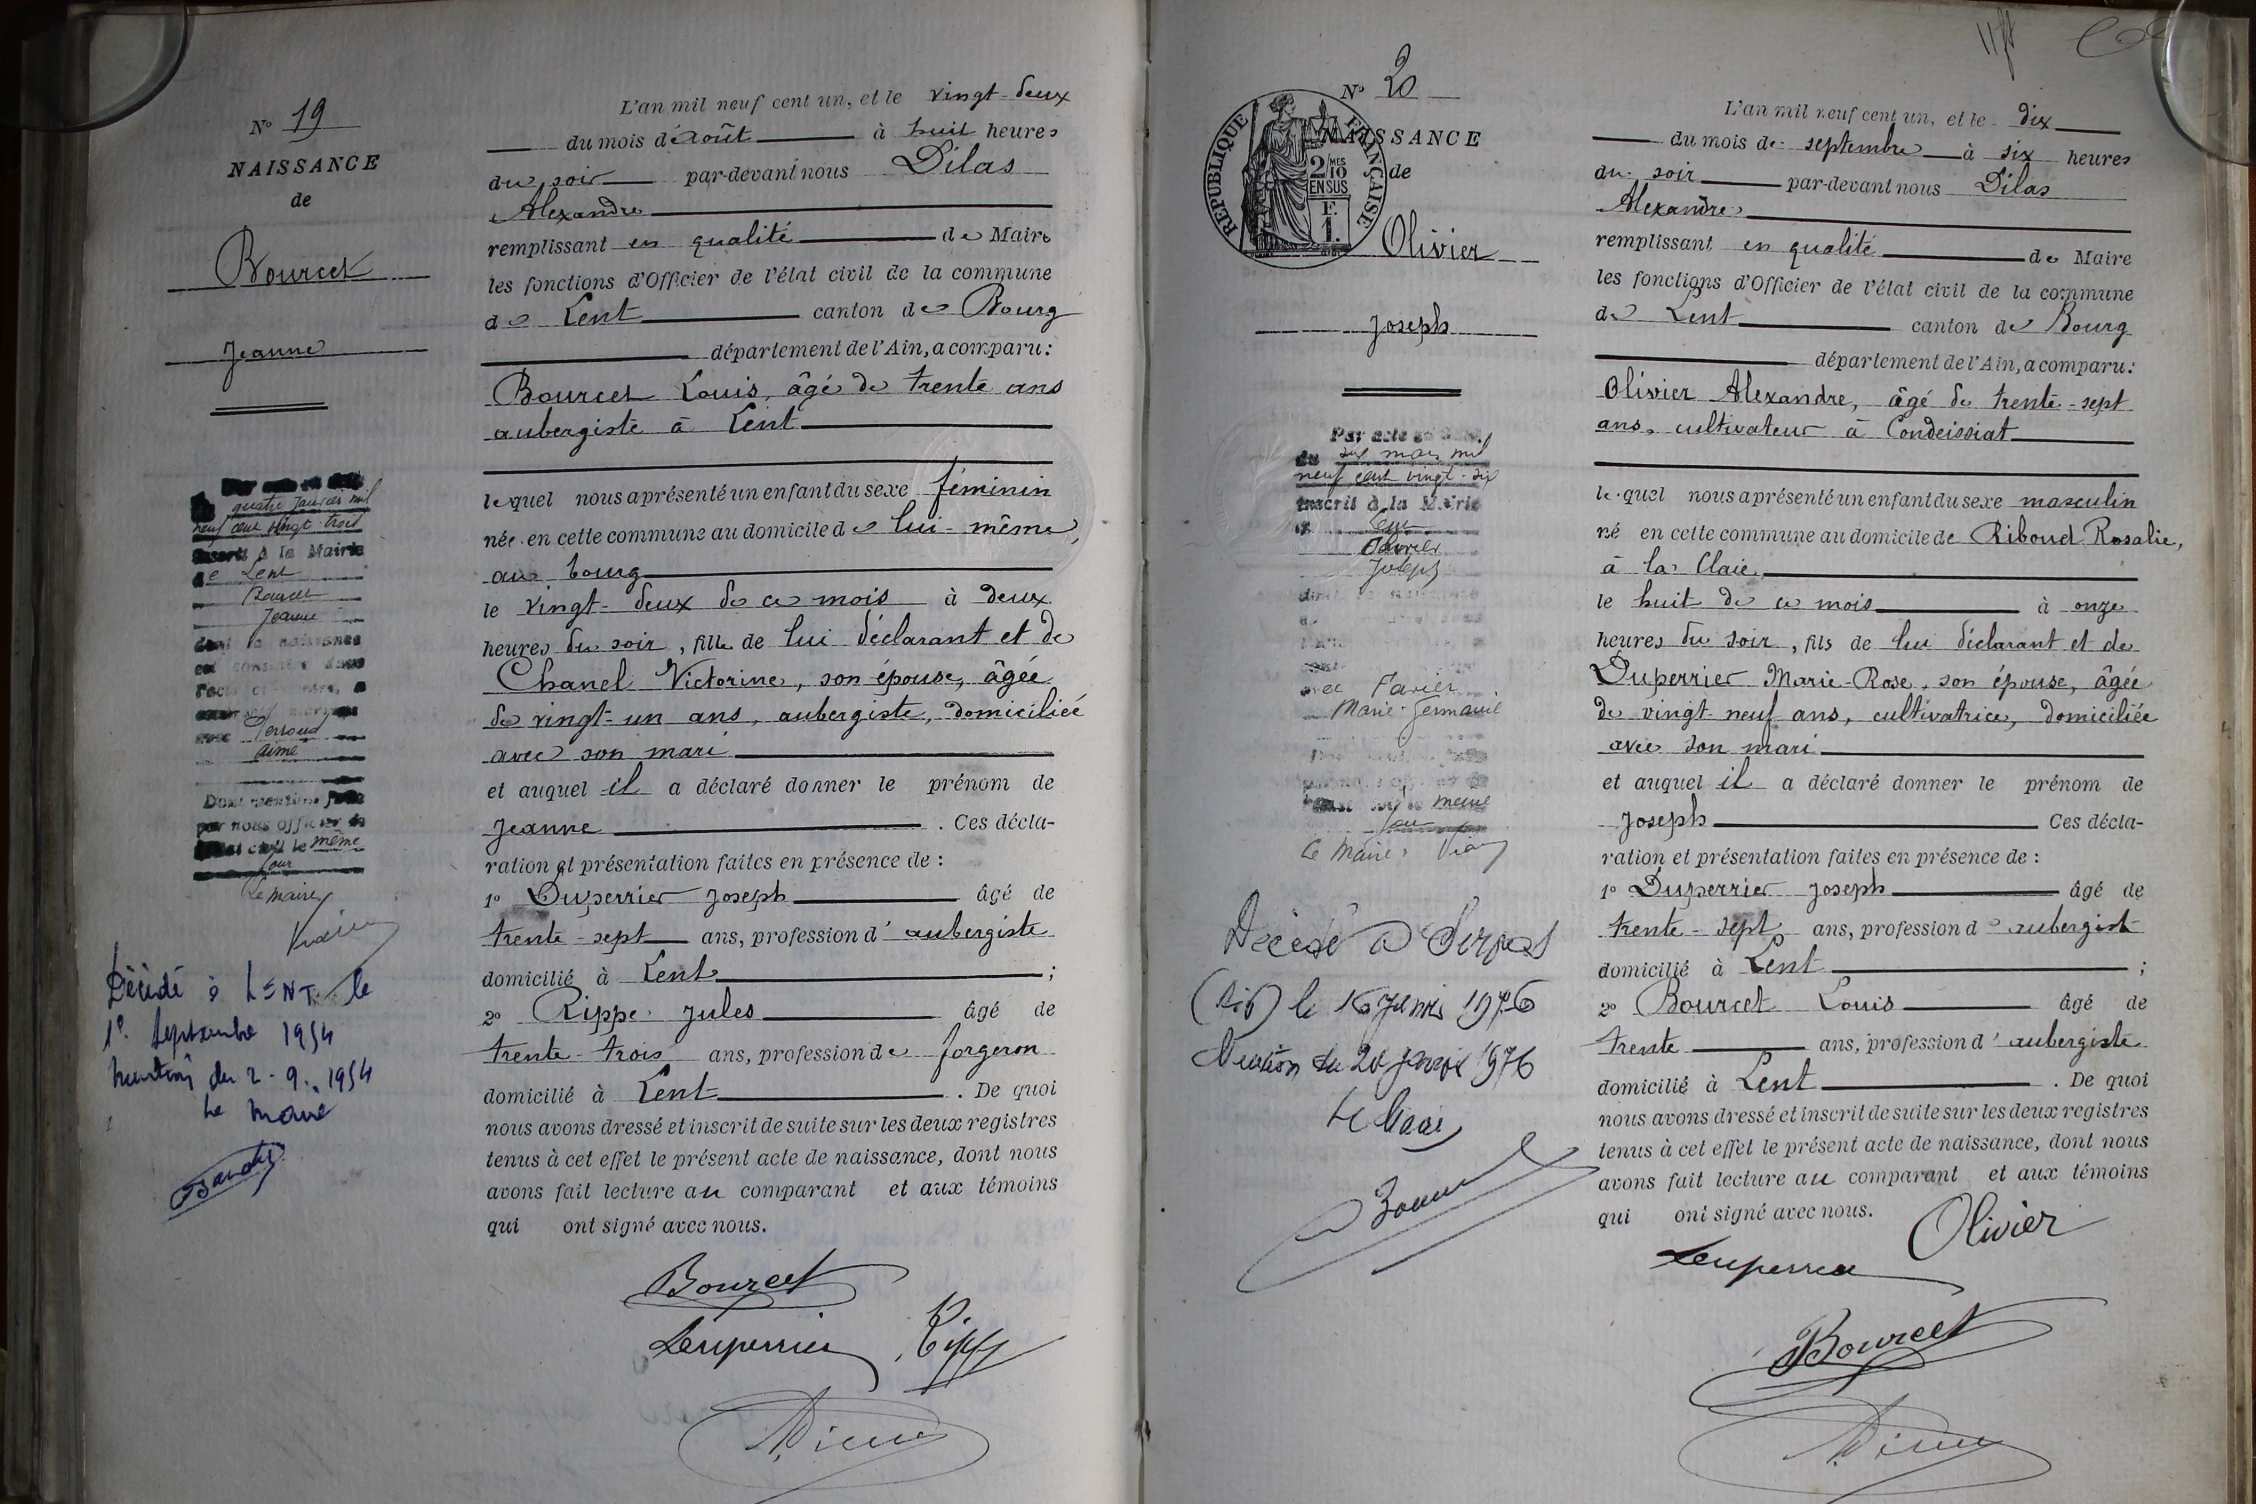 N° 19
NAISSANCE
de
Bourcet
Jeanne
quatre janvier mil
neuf cent vingt-trois
inscrit à la Mairie
de Lent
Bourcet
Jeanne
dont la naissance
est constatée dans
avec Perroud
Aimé
Dont mention faite
par nous officier de
l'état civil le même
jour
Le maire
Décédé à LENT le
1er Septembre 1954
Mention du 2-9-1954
Le Maire
L'an mil neuf cent un, et le vingt-deux
du mois d'août à huit heures
du soir par-devant nous Dilas
Alexandre
remplissant en qualité de Maire
les fonctions d'Officier de l'état civil de la commune
de Lent canton de Bourg
département de l'Ain, a comparu:
Bourcet Louis, âgé de trente ans
aubergiste à Lent
lequel nous a présenté un enfant du sexe féminin
née en cette commune au domicile de lui-même,
au bourg
le vingt-deux de ce mois à deux
heures du soir, fille de lui déclarant et de
Chanel Victorine, son épouse, âgée
de vingt-un ans, aubergiste, domiciliée
avec son mari
et auquel il a déclaré donner le prénom de
Jeanne . Ces décla-
ration et présentation faites en présence de :
1° Duperrier Joseph âgé de
trente-sept ans, profession d'aubergiste
domicilié à Lent ;
2° Rippe Jules âgé de
trente-trois ans, profession de forgeron
domicilié à Lent . De quoi
nous avons dressé et inscrit de suite sur les deux registres
tenus à cet effet le présent acte de naissance, dont nous
avons fait lecture au comparant et aux témoins
qui ont signé avec nous.
Bourcet
Duperrier Rippe
N° 20
RÉPUBLIQUE FRANÇAISE
2/10 MES
EN SUS
F.
1.
NAISSANCE
de
Olivier
Joseph
Par acte en date
du six mars mil
neuf cent vingt-six
inscrit à la Mairie
Olivier
Joseph
avec Favier
Marie-Germaine
même
jour
Le Maire
Décédé à
(Ain) le 16 janvier 1976
Mention du 20 janvier 1976
Le Maire
L'an mil neuf cent un, et le dix
du mois de septembre à six heures
du soir par-devant nous Dilas
Alexandre
remplissant en qualité de Maire
les fonctions d'Officier de l'état civil de la commune
de Lent canton de Bourg
département de l'Ain, a comparu:
Olivier Alexandre, âgé de trente-sept
ans, cultivateur à Condeissiat
lequel nous a présenté un enfant du sexe masculin
né en cette commune au domicile de Riboud Rosalie,
à la Claie
le huit de ce mois à onze
heures du soir, fils de lui déclarant et de
Duperrier Marie-Rose, son épouse, âgée
de vingt-neuf ans, cultivatrice, domiciliée
avec son mari
et auquel il a déclaré donner le prénom de
Joseph Ces décla-
ration et présentation faites en présence de :
1° Duperrier Joseph âgé de
trente-sept ans, profession d'aubergiste
domicilié à Lent ;
2° Bourcet Louis âgé de
trente ans, profession d'aubergiste
domicilié à Lent . De quoi
nous avons dressé et inscrit de suite sur les deux registres
tenus à cet effet le présent acte de naissance, dont nous
avons fait lecture au comparant et aux témoins
qui ont signé avec nous.
Olivier
Duperrier
Bourcet